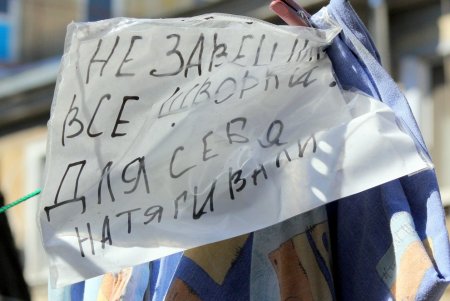 НЕ ЗАВЕШИ
ВСЕ ШВОРКИ.
ДЛЯ СЕБЯ
НАТЯГИВАЛИ